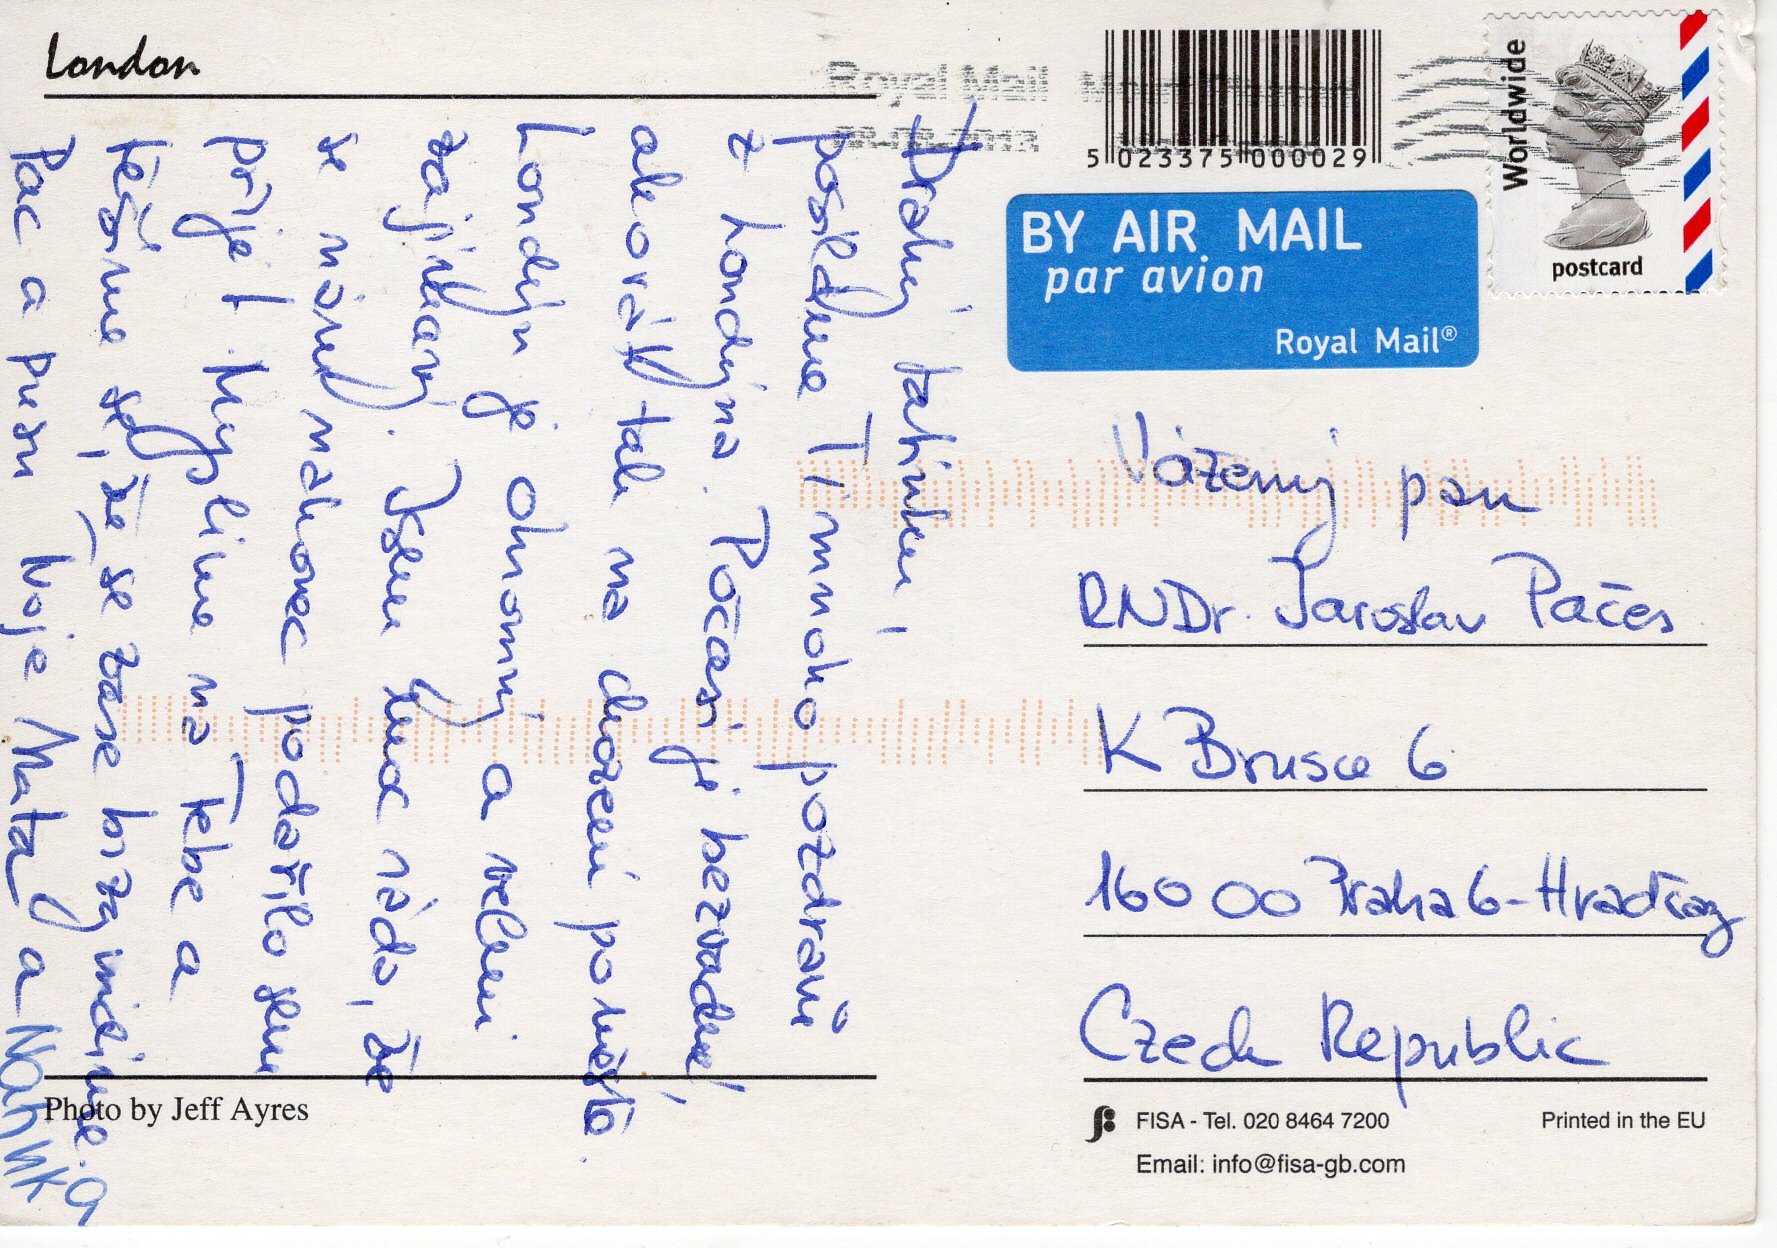 London
Royal Mail
5 023375 000029
Worldwide
postcard
BY AIR MAIL
par avion
Royal Mail®
Drahý tatínku,
posíláme Ti mnoho pozdravů
z Londýna. Počasí je bezvadné,
akorátě tak na chození po městě.
Londýn je ohromný a velmi
zajímavý. Jsem moc ráda, že
se nám nakonec podařilo sem
přijet. Myslíme na Tebe a
těšíme se, že se zase brzy uvidíme.
Pac a pusu Tvoje Kata a
Vážený pan
RNDr. Jaroslav Pačes
K Brusce 6
160 00 Praha 6-Hradčany
Czech Republic
Photo by Jeff Ayres
FISA - Tel. 020 8464 7200
Email: info@fisa-gb.com
Printed in the EU